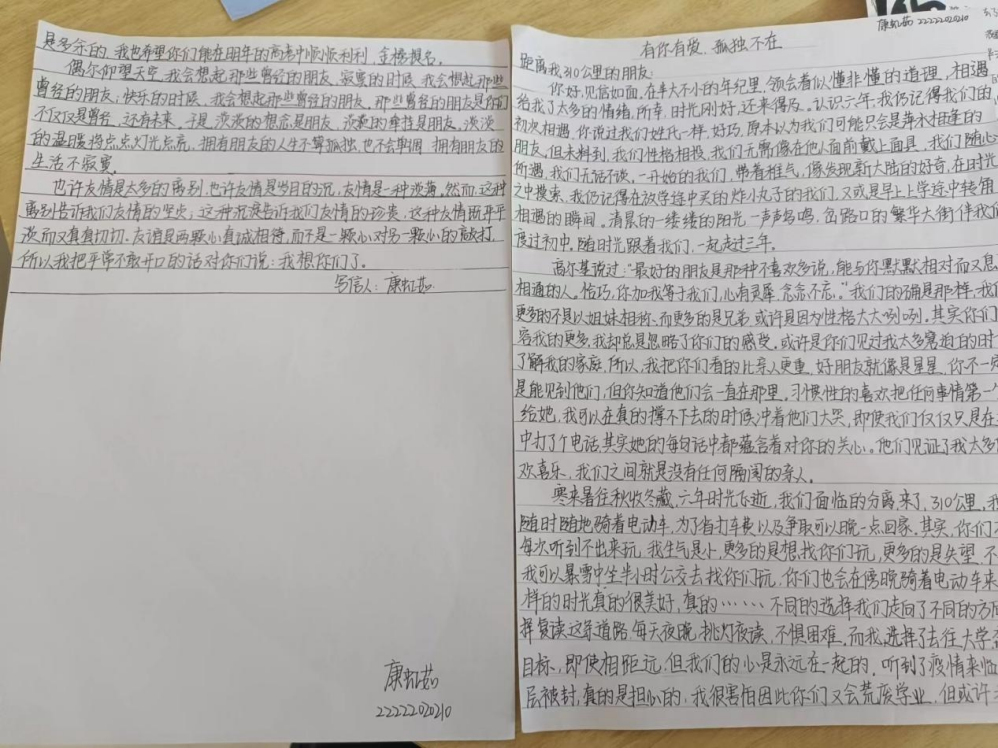 康虹茹 22222020210
有你有爱，孤独不在
距离我310公里的朋友：
你好，见信如面，在半大不小的年纪里，领会着似懂非懂的道理，相遇
给我了太多的情绪，所幸，时光刚好，还来得及。认识六年，我仍记得我们的
初次相遇，你说过我们姓氏一样，好巧，原本以为我们可能只会是萍水相逢的
朋友，但未料到，我们性格相投，我们无需像在他人面前戴上面具，我们随心
所遇，我们无话不谈，一开始的我们，带着稚气，像发现新大陆的好奇，在时光
之中搜索，我仍记得在放学途中买的炸小丸子的我们，又或是早上学途中转角
相遇的瞬间。清晨的一缕缕的阳光，一声声鸟鸣，岔路口的繁华大街伴我们
度过初中，随时光跟着我们，一起走过三年。
高尔基说过：“最好的朋友是那种不喜欢多说，能与你默默相对而又息
相通的人。恰巧，你加我等于我们，心有灵犀，念念不忘。”我们的确是那样，我们
更多的不是以姐妹相称，而更多的是兄弟，或许是因为性格大大咧咧。其实你们
容我的更多，我却总是忽略了你们的感受，或许是你们见过我太多窘迫的时
了解我的家庭，所以，我把你们看的比亲人更重，好朋友就像是星星，你不一定
是能见到他们，但你知道他们会一直在那里。习惯性的喜欢把任何事情第一个
给她，我可以在真的撑不下去的时候冲着他们大哭，即使我们仅仅只是在
中打了个电话，其实她的每句话中都蕴含着对你的关心。他们见证了我太多的
欢喜乐，我们之间就是没有任何隔阂的亲人。
寒来暑往秋收冬藏，六年时光飞逝，我们面临的分离，来了，310公里，我
随时随地骑着电动车，为了省打车费以及争取可以晚一点回家。其实，你们
每次听到不出来玩，我生气是小，更多的是想找你们玩，更多的是失望，不
我可以暴雪中坐半小时公交去找你们玩，你们也会在傍晚骑着电动车来
样的时光真的很美好，真的……不同的选择我们走向了不同的方向
择复读这条道路，每天夜晚，挑灯夜读，不惧困难，而我，选择了去往大学
目标，即使相距远，但我们的心是永远在一起的，听到了疫情来临
层被封，真的是担心的，我很害怕因此你们又会荒废学业，但或许
是多余的，我也希望你们能在明年的高考中顺顺利利，金榜题名。
偶尔仰望天空，我会想起那些曾经的朋友，寂寞的时候，我会想起那些
曾经的朋友；快乐的时候，我会想起那些曾经的朋友，那些曾经的朋友是你们
不仅仅是曾经，还有未来。于是，淡淡的想念是朋友，淡淡的牵挂是朋友。淡淡
的温暖将点点灯光点亮，拥有朋友的人生不算孤独，也不会单调，拥有朋友的
生活不寂寞。
也许友情是太多的离别，也许友情是岁月的沉，友情是一种淡薄。然而，这种
离别告诉我们友情的坚贞，这种沉淀告诉我们友情的珍贵，这种友情既平平
淡而又真真切切。友谊是两颗心真诚相待，而不是一颗心对另一颗心的敲打，
所以我把平常不敢开口的话对你们说：我想你们了。
写信人：康虹茹
康虹茹
22222020210